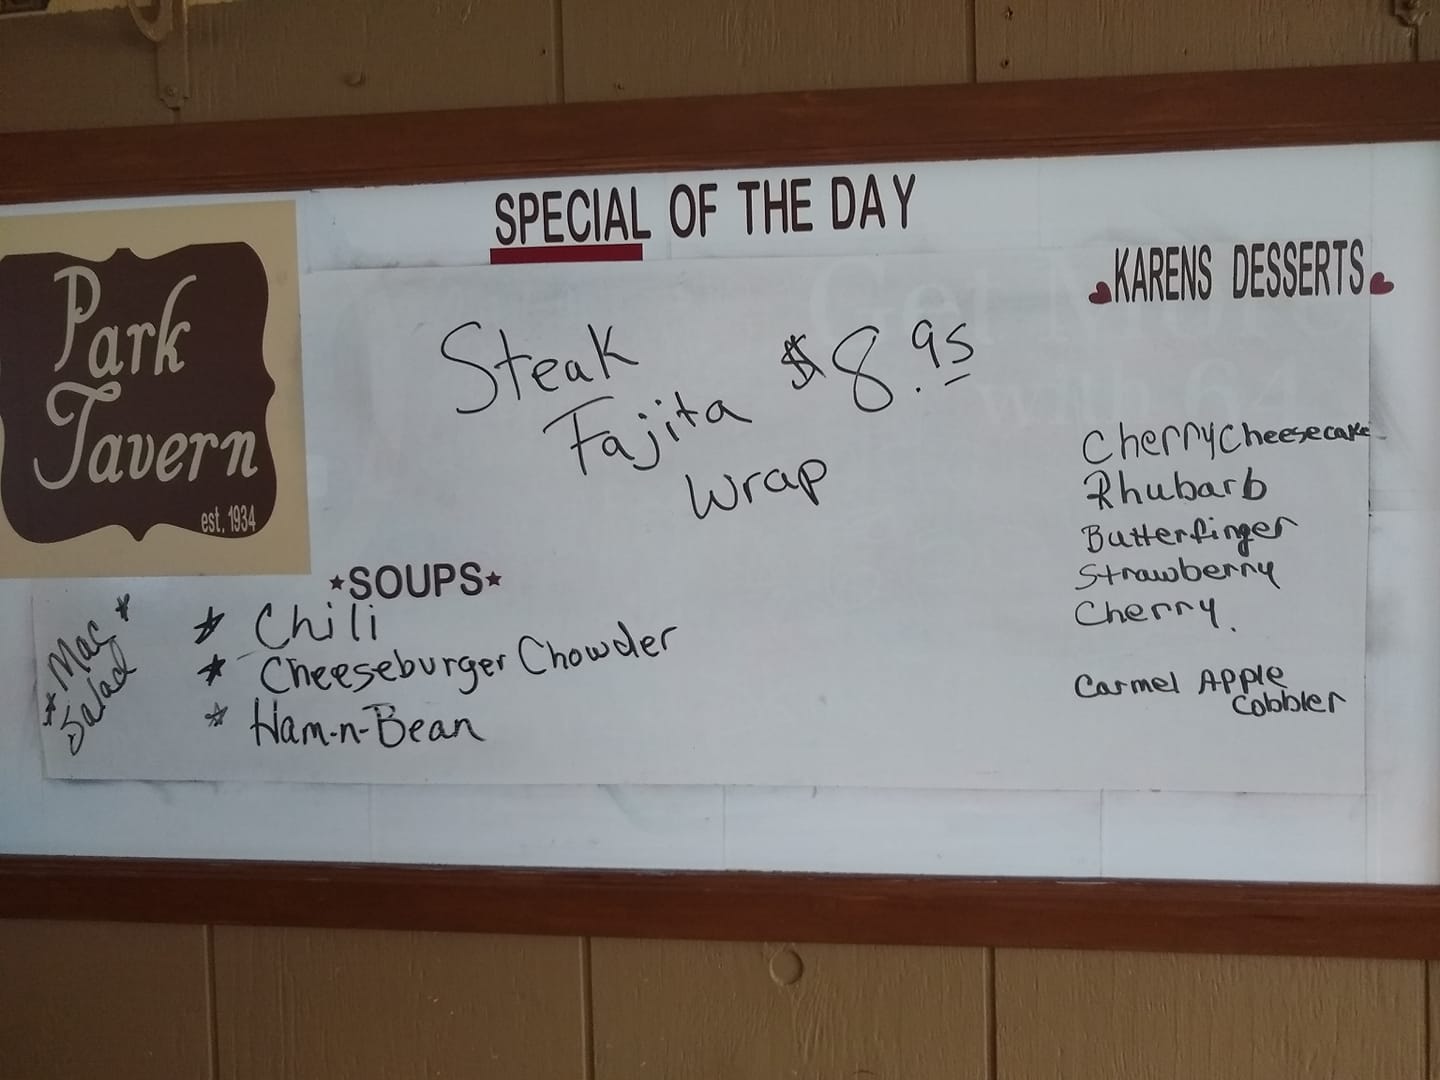 SPECIAL OF THE DAY
Park
Tavern
est. 1934
Steak
Fajita
Wrap
$8.95
★SOUPS★
* Chili
* Cheeseburger Chowder
* Ham-n-Bean
* Mac *
Salad
KARENS DESSERTS
CherryCheesecake
Rhubarb
Butterfinger
Strawberry
Cherry.
Carmel Apple
Cobbler